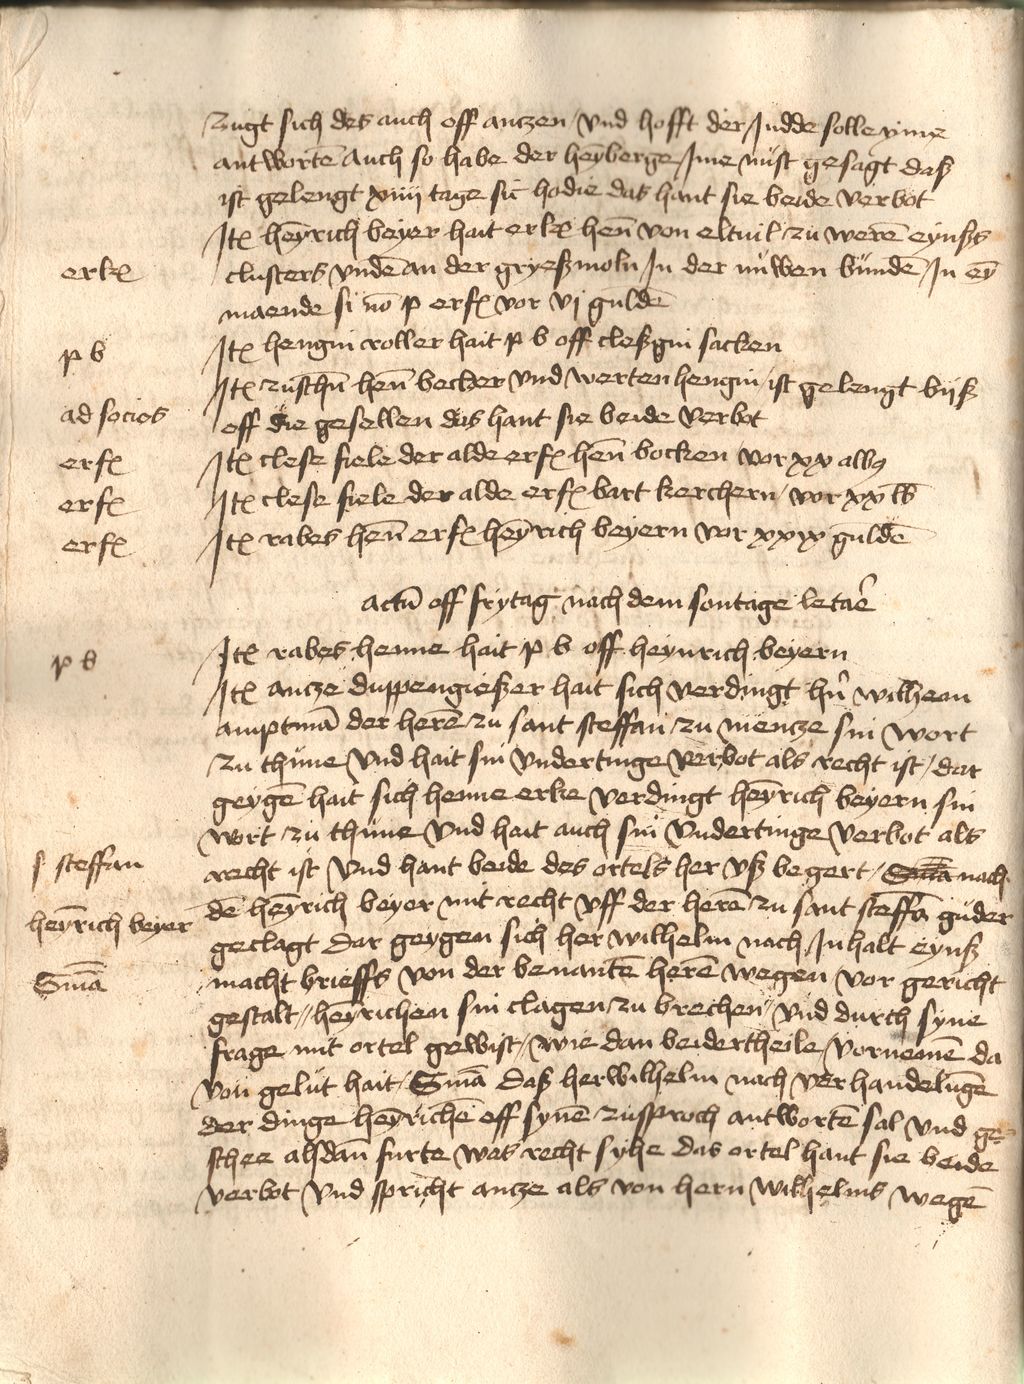 zugt sich des auch off anczen / vnd hofft der Judde solle yme
antworte͞ auch so habe der hey͞berge Jme nust gesagt daß
ist gelengt xiiij tage sic͞ hodie das hant sie beide verbot
Jt͞ hey͞rich beyer hait erk͞ hen͞ von eltuil zu were͞ eynßs
erk͞
clusters vnde͞ an der gryeßmoln Jn der nuwen bunde͞ Jn ey͞
maende si no͞ p erf͞ vor vj gulde͞
p b
Jt͞ hengin roller hait p b off cleßgin sacken
Jt͞ zusch͞n hen͞ becker vnd wertenhengin / ist gelengt biß
ad socios
off die gesellen das hant sie beide verbot
erf͞
Jt͞ clese fiele der alde erf͞ hen͞ bocken vor xx alb9
erf͞
Jt͞ clese fiele der alde erf͞ hart kerchern / vor xx lb
erf͞
Jt͞ rabes hen͞ erf͞ hey͞rich beyern vor xxx gulde͞
actu͞ off frytag nach dem sontage letar͞e
p b
Jt͞ rabes henne hait p b off heynrich beyern
Jt͞ ancze duppengießer hait sich verdingt h͞n wilhem
amptma͞ der here͞ zu sant steffan zu mencze sin wort
zu thune vnd hait sin vndertinge verbot als recht ist / dar
geyge͞ hait sich henne erke verdingt hey͞rich beyern sin
wort zu thune vnd hait auch sin vndertinge verbot als
s steffan
recht ist vnd hant beide des ortels her vß begert / Sm͞a nach
heyn͞rich beyer
de͞ hey͞rich beyer mit recht vff der here͞ zu sant steffa͞ guder
geclagt dar geygen sich her wilhelm nach Jnhalt eynß
Sm͞a
macht brieffs von der benante͞ here͞ wegen vor gericht
gestalt // hey͞richen sin clagen zu brechen // vnd durch syne
frage mit ortel gewist // wie dan beidertheile / vorneme͞ da
von gelut hait / Sm͞a daß her wilhelm nach verhandelu͞ge
der dinge hey͞riche͞ off syne͞ zusproch antworte͞ sal vnd ge-
schee alsdan͞ furte was recht syhe das ortel hant sie beide
verbot vnd spricht ancze als von hern wilhelms wege͞